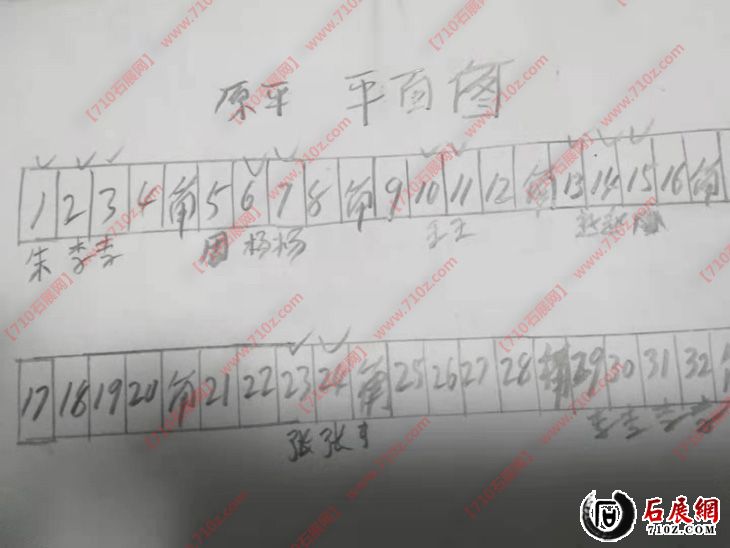 原平 平面图
1 2 3 4 角 5 6 7 8 角 9 10 11 12 角 13 14 15 16 角
朱 李 李 周 杨 杨 王 王
17 18 19 20 角 21 22 23 24 角 25 26 27 28 角 29 30 31 32
张 张 李 李 李
【710石展网】www.710z.com
石展網
www.710z.com